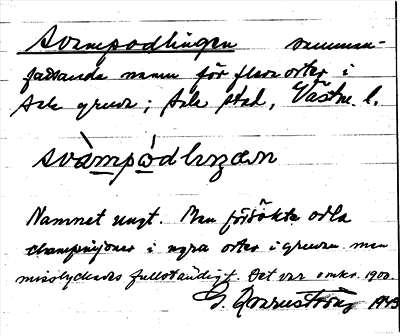 Svampodlingen samman-
fattande namn för flera orter i
Sala gruva; Sala stad, Västm. l.
svàmpòdlıŋæn
Namnet ungt. Man försökte odla
champinjoner i nyra orter i gruvan men
misslyckades fullständigt. Det var omkr. 1900.
1943